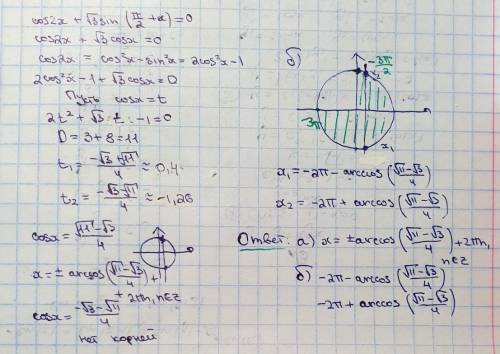 cos2x + √3 sin (π/2 + x) = 0
cos2x + √3 cosx = 0
cos2x = cos²x - sin²x = 2cos²x - 1
2cos²x - 1 + √3 cosx = 0
Пусть cosx = t
2t² + √3 t - 1 = 0
D = 3 + 8 = 11
t₁ = (-√3 + √11)/4 ≈ 0,4
t₂ = (-√3 - √11)/4 ≈ -1,26
cosx = (√11 - √3)/4
x = ± arccos ((√11 - √3)/4) +
+ 2πn, n∈z
cosx = (-√3 - √11)/4
нет корней
б)
-3π/2
x₂
-3π
x₁
x₁ = -2π - arccos ((√11 - √3)/4)
x₂ = -2π + arccos ((√11 - √3)/4)
Ответ: а) x = ± arccos ((√11 - √3)/4) + 2πn,
n∈z
б) -2π - arccos ((√11 - √3)/4)
-2π + arccos ((√11 - √3)/4)